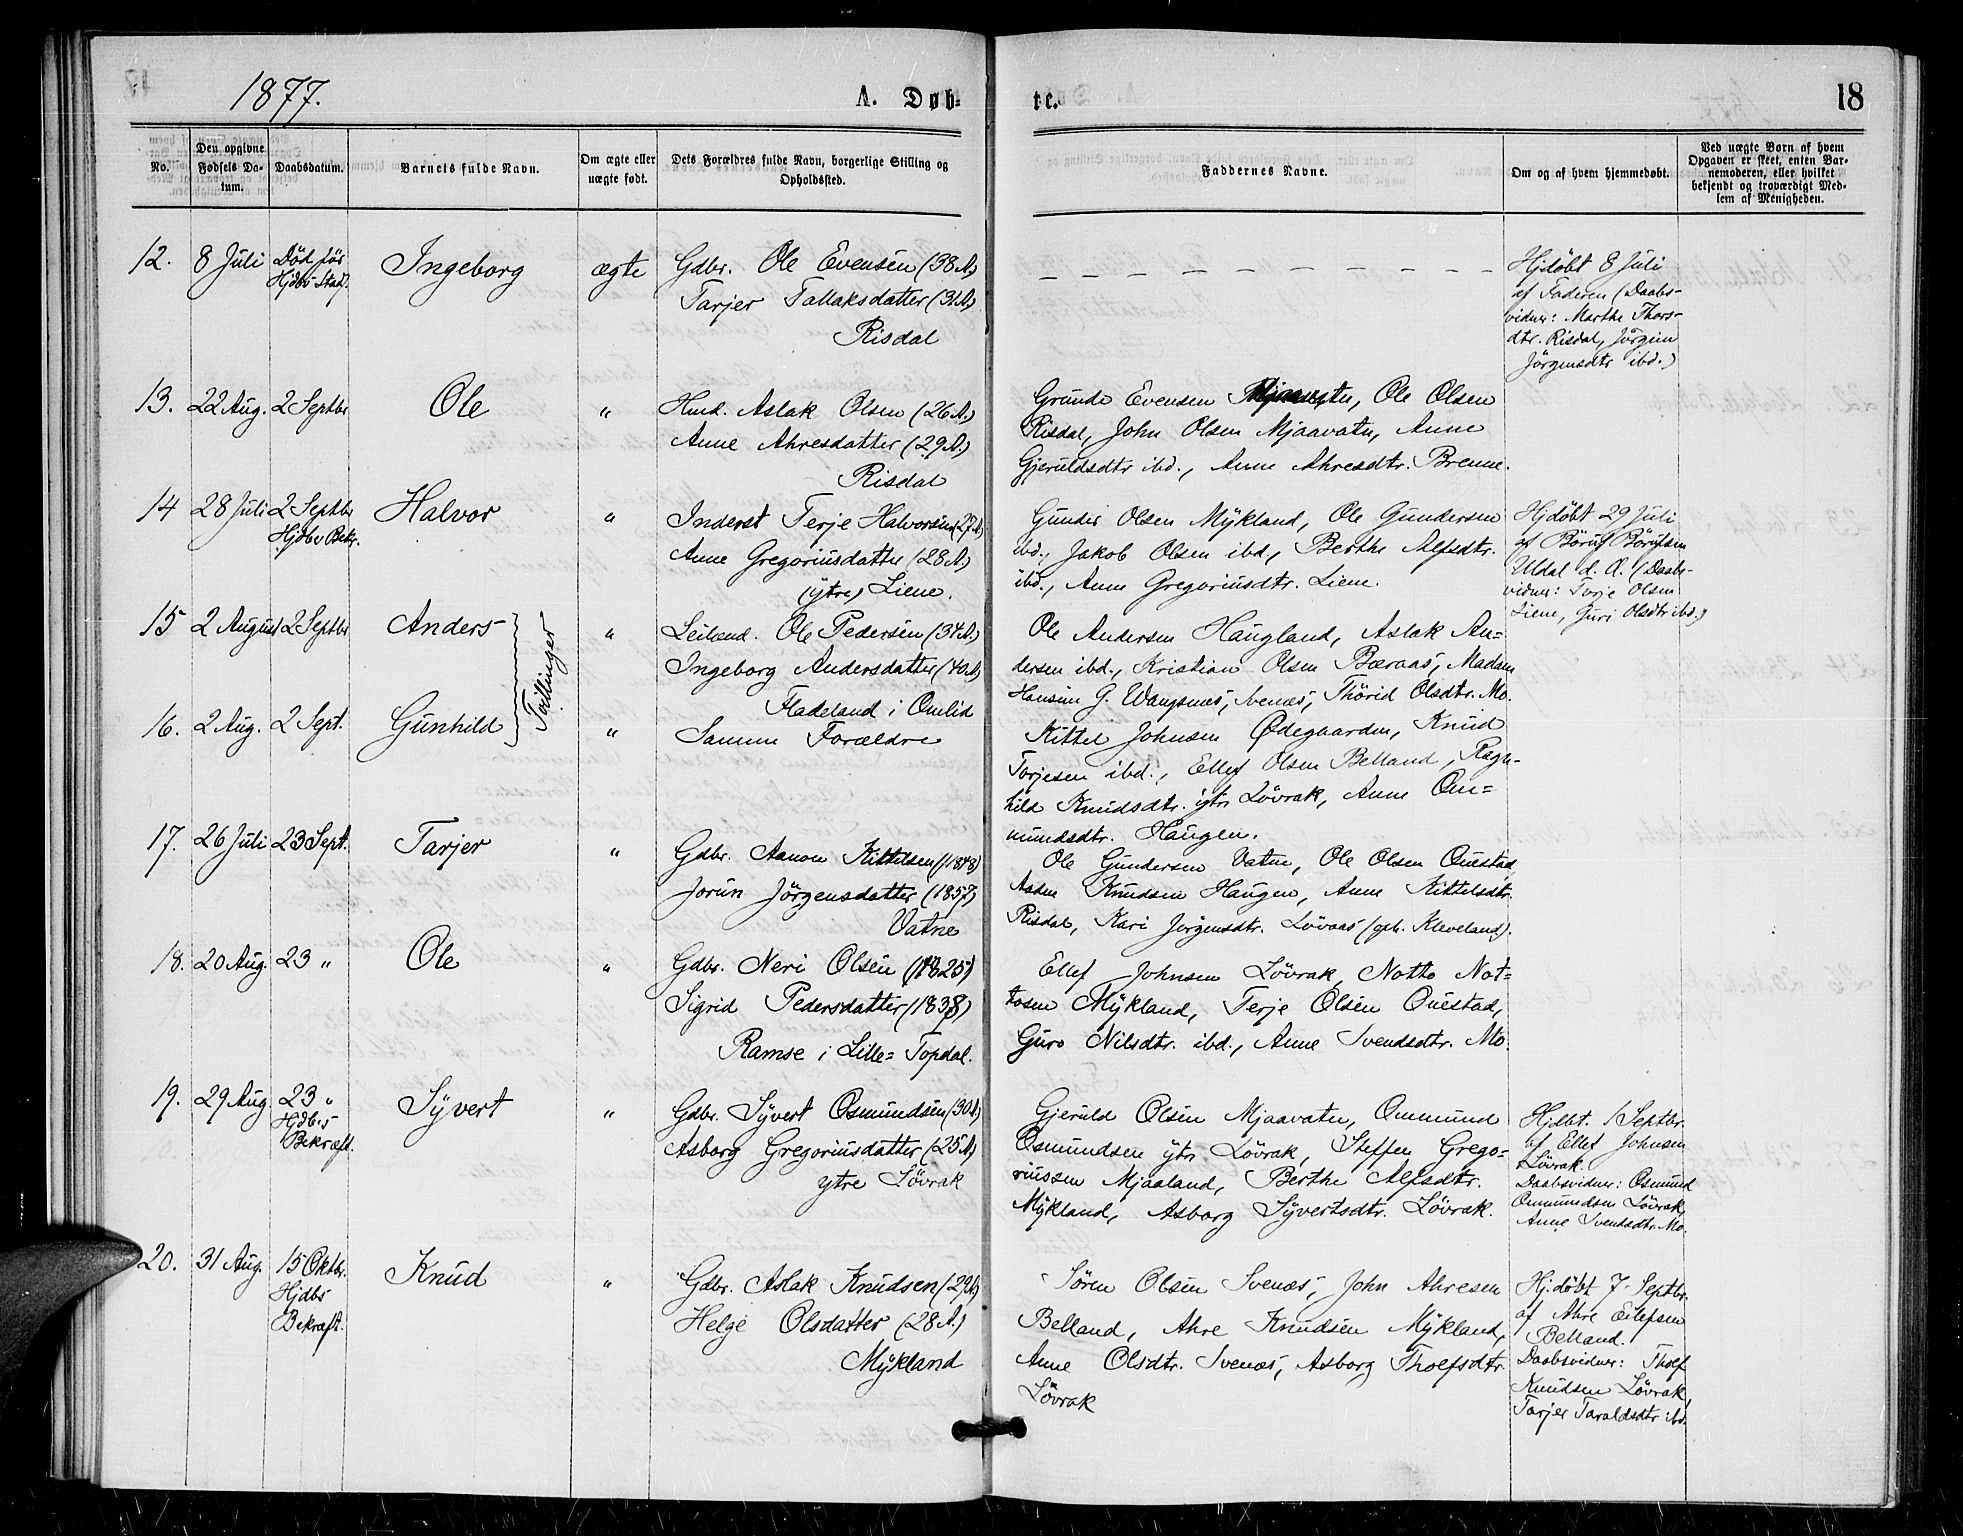 1877.
A. Døb-
te.
18
No.
Den opgivne Fødsels Da-tum.
Daabsdatum.
Barnets fulde Navn.
Om ægte eller uægte født.
Dets Forældres fulde Navn, borgerlige Stilling og Opholdssted.
Faddernes Navne.
Om og af hvem hjemmedøbt.
Ved uægte Børn af hvem Opgaven er skeet, enten Bar-nemoderen, eller hvilket bekjendt og troværdigt Med-lem af Menigheden.
12. 8 Juli Død før Hjdbs Stadf. Ingeborg ægte
Gdbr. Ole Evensen (38 A)
Tarjer Tallaksdatter (31 A)
Risdal
Hjdøbt 8 Juli
af Faderen (Daabs-
vidner: Marthe Thors-
dtr. Risdal, Jörgine
Jörgensdtr ibd.)
13. 22 Aug. 2 Septbr Ole "
Hmd. Aslak Olsen (26 A.)
Anne Ahresdatter (29 A.)
Risdal
Grunde Evensen Mjaavatn, Ole Olsen
Risdal, John Olsen Mjaavatn, Anne
Gjeruldsdtr ibd., Anne Ahresdtr. Brenne.
14 28 Juli 2 Septbr Hjdbs Bekr. Halvor "
Inderst Terje Halvorsen (27 A)
Anne Gregoriusdatter (28 A.)
(ytre) Liene.
Gunder Olsen Mykland, Ole Gundersen
ibd., Jakob Olsen ibd, Berthe Alfsdtr.
ibd., Anne Gregoriusdtr. Liene.
Hjdøbt 29 Juli
af Böruf Börufsen
Uldal d. A. (Daabs-
vidner: Terje Olsen
Liene, Guri Olsdtr ibd.)
15 2 August 2 Septbr Anders "
Tvillinger
Leilænd. Ole Pedersen (34 A)
Ingeborg Andersdatter (40 A)
Fladeland i Omlid
Ole Andersen Haugland, Aslak An=
dersen ibd., Kristian Olsen Bæraas, Madam
Hansine G. Wangsnes, Svenæs, Thörid Olsdtr. Mo.
16. 2 Aug. 2 Sept. Gunhild "
Samme Forældre
Kittel Johnsen Ødegaarden, Knud
Torjesen ibd., Ellef Olsen Belland, Ragn-
hild Knudsdtr. ytre Lövrak, Anne Om=
mundsdtr. Haugen.
17. 26 Juli 23 Sept. Tarjer "
Gdbr. Aanon Kittelsen (1848)
Jorun Jörgensdatter (1857)
Vatne
Ole Gundersen Vatne, Ole Olsen Ouestad
Aadne Knudsen Haugen, Anne Kittelsdtr.
Risdal, Kari Jörgensdtr. Lövaas (geb. Kleveland).
18. 20 Aug. 23 " Ole "
Gdbr. Neri Olsen (1825)
Sigrid Pedersdatter (1838)
Ramse i Lille=Topdal.
Ellef Johnsen Lövrak, Notto Not=
tosen Mykland, Terje Olsen Ouestad,
Guro Nilsdtr. ibd., Anne Svendsdtr. Mo.
19. 29 Aug. 23 " Hjdbs Bekræft. Syvert "
Gdbr. Syvert Osmundsen (30 A)
Asborg Gregoriusdatter (25 A)
ytre Lövrak
Gjeruld Olsen Mjaavatn, Ommund
Osmundsen ytr. Lövrak, Steffen Grego=
riussen Mjaaland, Berthe Alfsdtr.
Mykland, Asborg Syvertsdtr. Lövrak.
Hjdbt. 1 Septbr.
af Ellef Johnsen
Lövrak.
Daabsvidner: Osmund
Ommundsen Lövrak,
Anne Svendsdtr. Mo.
20. 31 Aug. 15 Oktbr. Hjdbs Bekræft. Knud "
Gdbr. Aslak Knudsen (29 A)
Helge Olsdatter (28 A.)
Mykland
Sören Olsen Svenæs, John Ahresen
Belland, Ahre Knudsen Mykland,
Anne Olsdtr. Svenæs, Asborg Tholfsdtr.
Lövrak
Hj. döbt 7. Septbr.
af Ahre Eilefsen
Belland.
Daabsvidner: Tholf
Knudsen Lövrak,
Tarjer Taraldsdtr ibd.